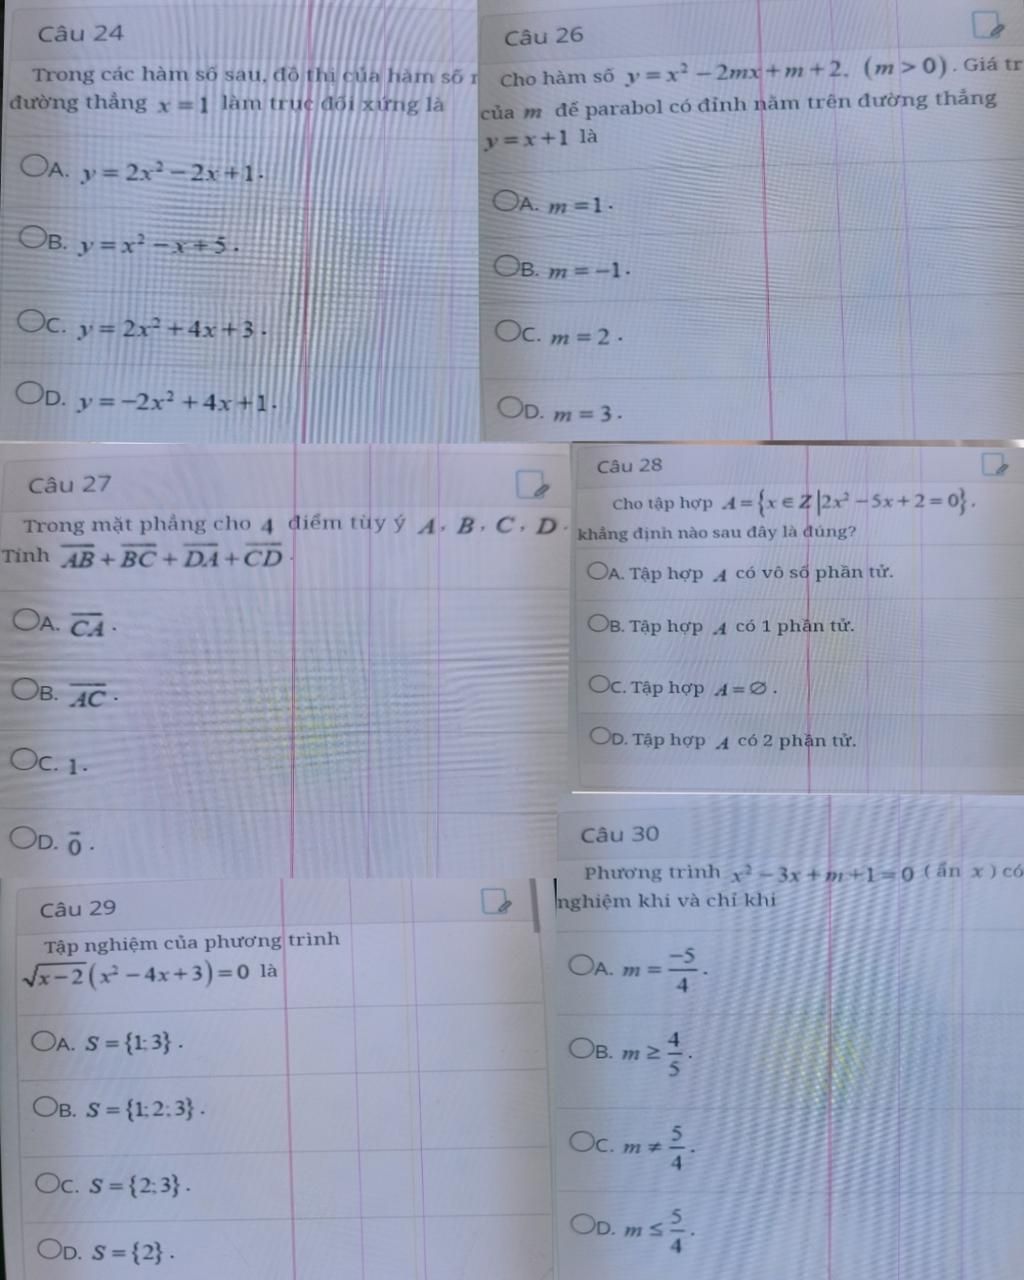 Câu 24
Trong các hàm số sau, đồ thị của hàm số
đường thẳng x = 1 làm trục đối xứng là
A. y = 2x² − 2x + 1.
B. y = x² − x + 5.
C. y = 2x² + 4x + 3.
D. y = −2x² + 4x + 1.
Câu 26
Cho hàm số y = x² − 2mx + m + 2, (m > 0). Giá tr
của m để parabol có đỉnh nằm trên đường thẳng
y = x + 1 là
A. m = 1.
B. m = −1.
C. m = 2.
D. m = 3.
Câu 27
Trong mặt phẳng cho 4 điểm tùy ý A, B, C, D.
Tính \overline{AB} + \overline{BC} + \overline{DA} + \overline{CD}.
A. \overline{CA}.
B. \overline{AC}.
C. 1.
D. \vec{0}.
Câu 28
Cho tập hợp A = {x ∈ Z | 2x² − 5x + 2 = 0},
khẳng định nào sau đây là đúng?
A. Tập hợp A có vô số phần tử.
B. Tập hợp A có 1 phần tử.
C. Tập hợp A = ∅.
D. Tập hợp A có 2 phần tử.
Câu 29
Tập nghiệm của phương trình
√(x−2)(x² − 4x + 3) = 0 là
A. S = {1; 3}.
B. S = {1; 2; 3}.
C. S = {2; 3}.
D. S = {2}.
Câu 30
Phương trình x² − 3x + m + 1 = 0 (ẩn x) có
nghiệm khi và chỉ khi
A. m = −5/4.
B. m ≥ 4/5.
C. m ≠ 5/4.
D. m ≤ 5/4.